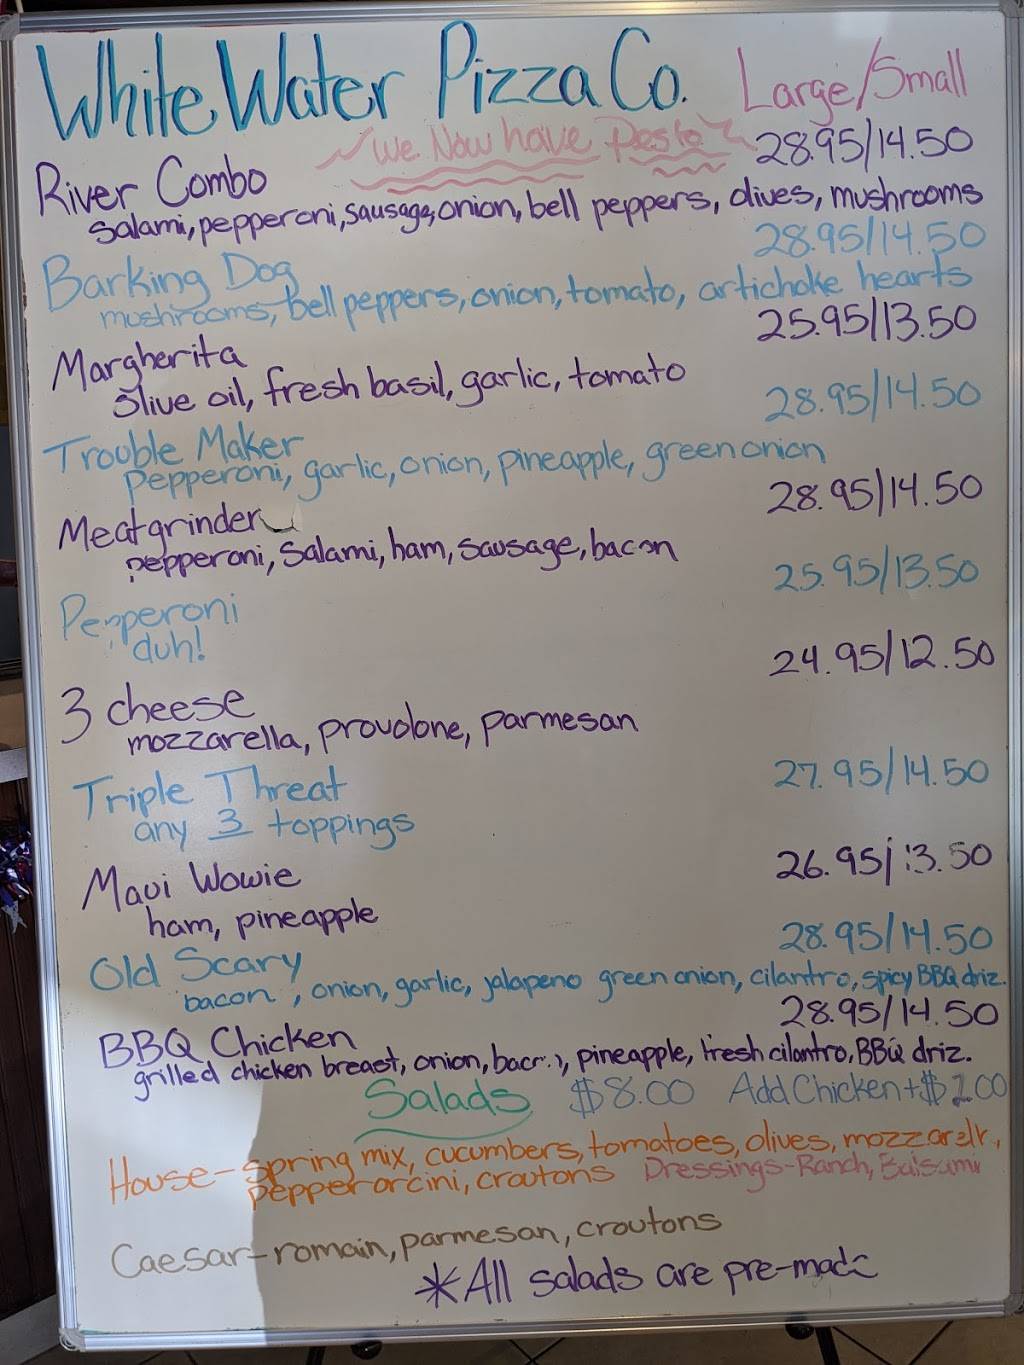 White Water Pizza Co. Large/Small
We Now have Pesto 28.95/14.50
River Combo
salami, pepperoni, sausage, onion, bell peppers, olives, mushrooms
28.95/14.50
Barking Dog
mushrooms, bell peppers, onion, tomato, artichoke hearts
25.95/13.50
Margherita
olive oil, fresh basil, garlic, tomato
28.95/14.50
Trouble Maker
Pepperoni, garlic, onion, pineapple, green onion
28.95/14.50
Meatgrinder
pepperoni, salami, ham, sausage, bacon
25.95/13.50
Pepperoni
duh!
24.95/12.50
3 cheese
mozzarella, provolone, parmesan
27.95/14.50
Triple Threat
any 3 toppings
26.95/13.50
Maui Wowie
ham, pineapple
28.95/14.50
Old Scary
bacon, onion, garlic, jalapeno green onion, cilantro, spicy BBQ driz.
28.95/14.50
BBQ Chicken
grilled chicken breast, onion, bacon, pineapple, fresh cilantro, BBQ driz.
Salads $8.00 Add Chicken +$2.00
House - spring mix, cucumbers, tomatoes, olives, mozzarella,
pepperoncini, croutons Dressings - Ranch, Balsami
Caesar - romain, parmesan, croutons
*All salads are pre-made